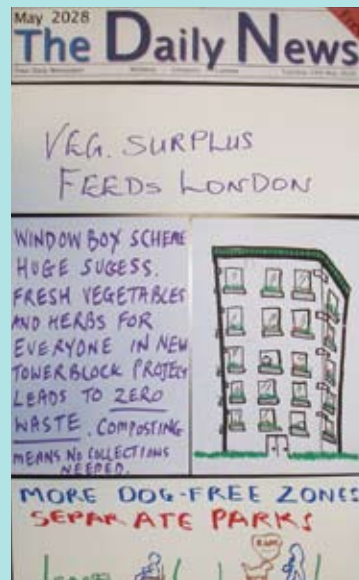 May 2028
The Daily News
VEG. SURPLUS
FEEDS LONDON
WINDOW BOX SCHEME
HUGE SUGESS.
FRESH VEGETABLES
AND HERBS FOR
EVERYONE IN NEW
TOWER BLOCK PROJECT
LEADS TO ZERO
WASTE. COMPOSTING
MEANS NO COLLECTIONS
NEEDED.
MORE DOG-FREE ZONES
SEPARATE PARKS